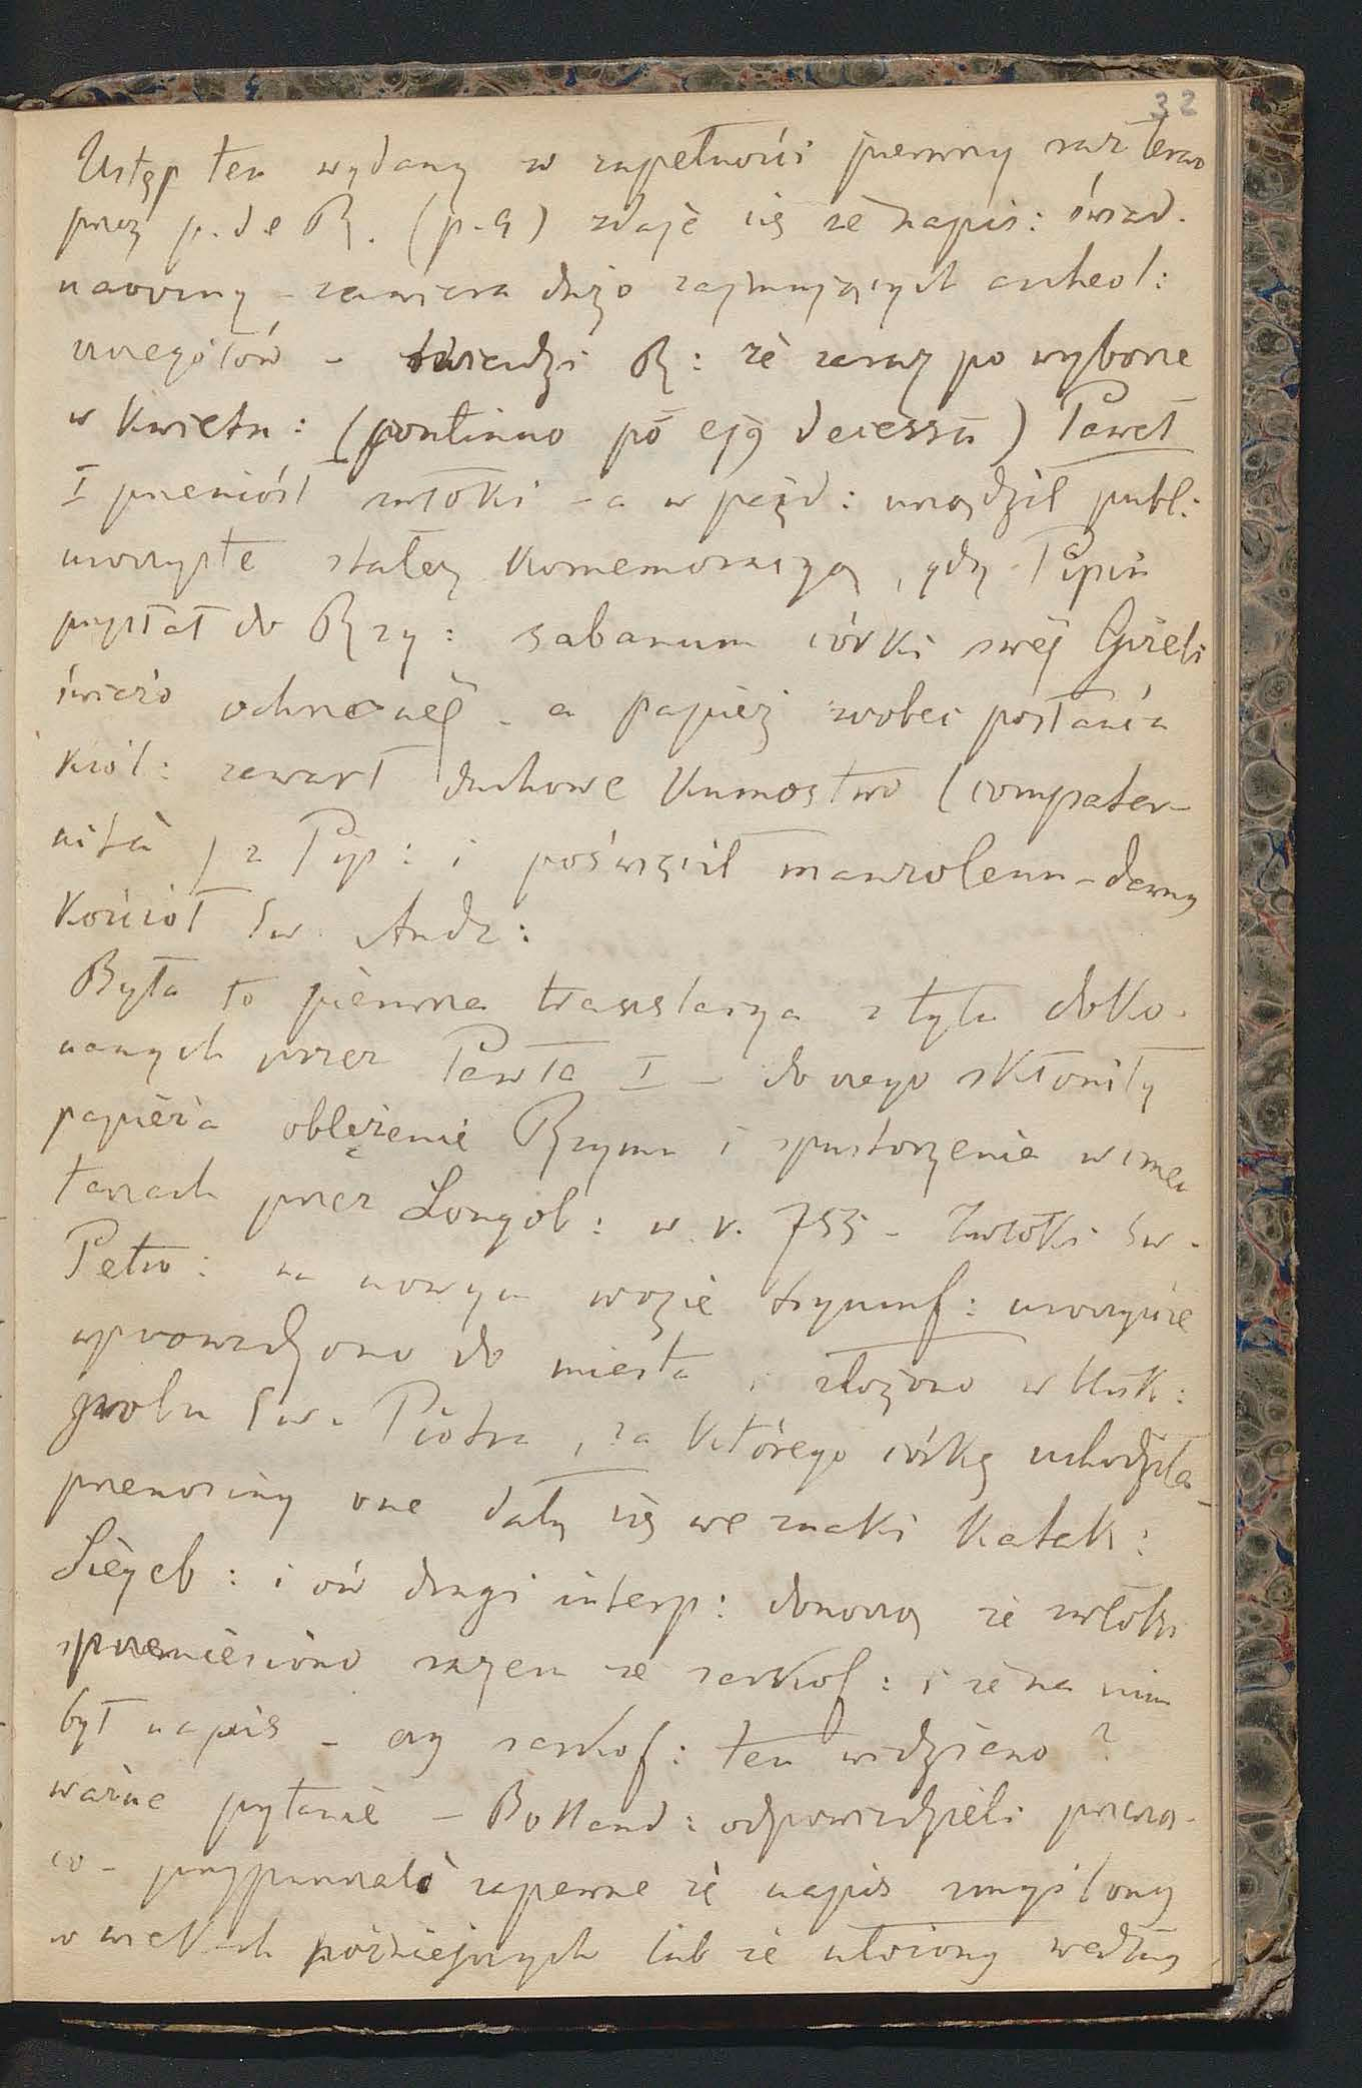 32
Ustęp ten wydany w zupełności pierwszy raz teraz
przez p. de R. (p. 9) zdaje się że napis: świad.
naoczny – zawiera dużo zajmujących archeol:
szczegółów – twierdzi R: że zaraz po wyborze
w Kwietn: (pontinno pō ejꝰ decessū) Paweł
I przeniósł zwłoki – a w paźd: urządził publ:
uroczystą stałą komemoracyą, gdy Pipin
przysłał do Rzy: sabanum córki swéj Gizeli
świeżo ochrzcnéj – a papież wobec posłańca
król: zawarł duchowe Kumostwo (compater-
nità) z Pip: i poświęcił mauzoleum – dawny
Kościół Św. Andr:
Była to pierwsza translacya z tylu doko-
nanych przez Pawła I – do czego skłoniły
papieża oblężenie Rzymu i spustoszenie w cmen
tarzach przez Longob: w r. 755 – Zwłoki Św.
Petro: na nowym wozie tryumf: uroczyście
wprowadzono do miasta i złożono w blisk:
grobu Św. Piotra, za którego córkę uchodziła –
przenosiny one dały się we znaki Katak:
Siegeb: i ów drugi interp: donoszą że zwłoki
przeniesiono razem ze sarkof: i że na nim
był napis – czy sarkof: ten widziano?
ważne pytanie – Bolland: odpowiedzieli przeczą-
co – przypuszczali zapewne że napis zmyślony
w wiekach późniejszych lub że ułożony według